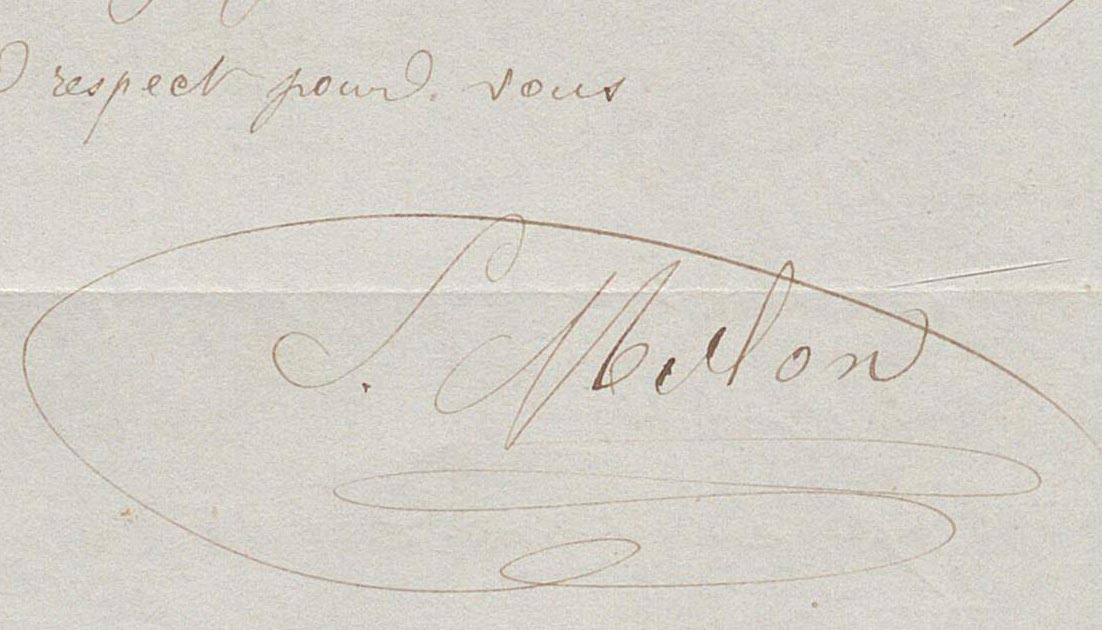 respect pour vous
S. Melon